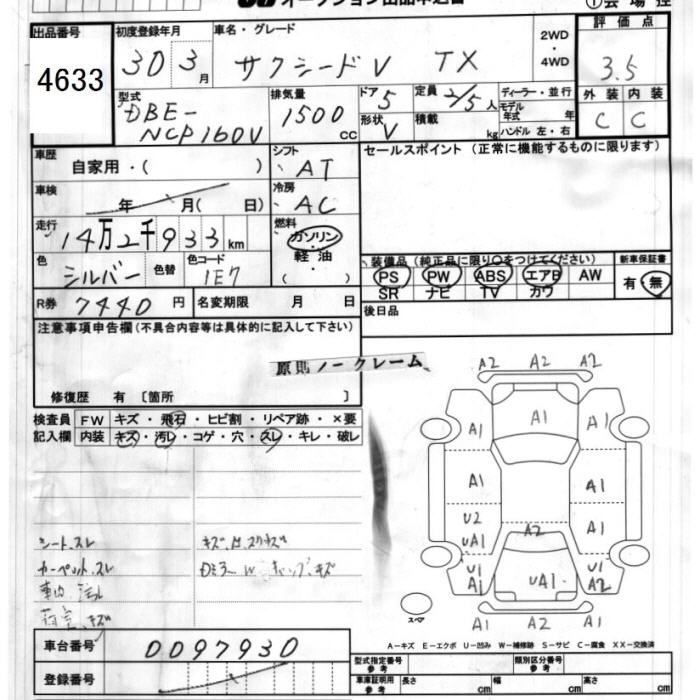 出品番号 初度登録年月 車名・グレード 2WD・4WD 評価点
4633 30 3月 サクシードV TX 3.5
型式 排気量 ドア 5 定員 2/5人 ディーラー・並行 外装 内装
DBE-NCP160V 1500cc 形状 V 積載 kg モデル年式 年 C C
ハンドル 左・右
車歴 自家用・( ) シフト AT セールスポイント (正常に機能するものに限ります)
車検 年 月( 日) 冷房 AC
走行 14万2千933km 燃料 ガソリン・軽油・( )
色 シルバー 色替 色コード 1E7
装備品 (純正品に限り○をつけてください) 新車保証書
PS PW ABS エアB AW 有・無
SR ナビ TV カワ
R券 7440円 名変期限 月 日 後日品
注意事項申告欄 (不具合内容等は具体的に記入して下さい)
原則ノークレーム
修復歴 有 〔箇所 〕
検査員記入欄 FW キズ・飛石・ヒビ割・リペア跡・×要
内装 キズ・汚レ・コゲ・穴・スレ・キレ・破レ
A2 A2 A2
A1 A1 A1
A1 A1
U2 A1
UA1 A2
U1 A1 UA1 U1 A2
A1 A2 A1
スペア
シート、スレ
カーペット、スレ
A-キズ E-エクボ U-凹み W-補修跡 S-サビ C-腐食 XX-交換済
車台番号 0097930
登録番号
型式指定番号 参考 類別区分番号 参考
車庫証明用 参考 長さ cm 幅 cm 高さ cm